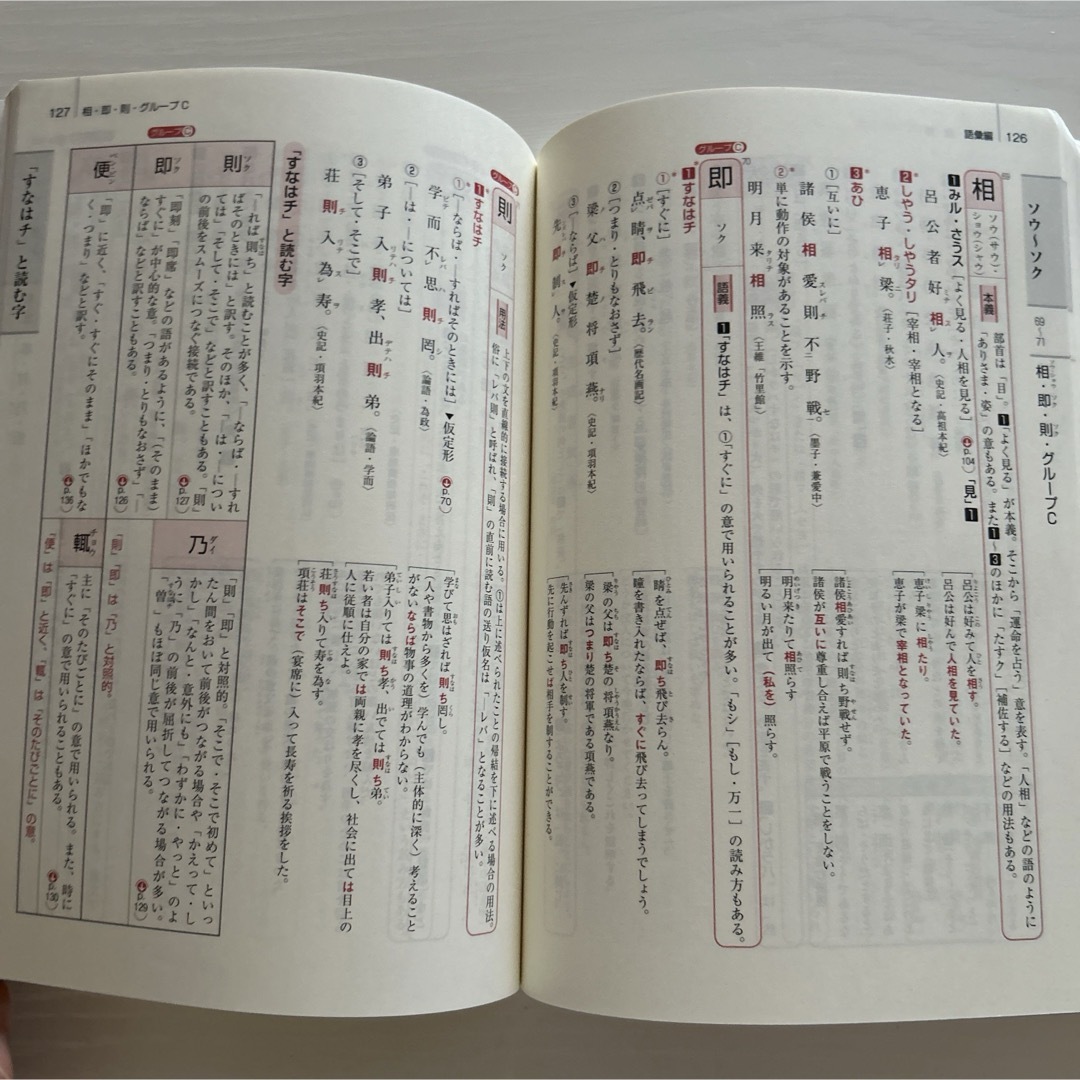 語彙編 126
ソウ〜ソク
69〜71 相・即・則・グループC
69
相
ソウ(サウ)・
ショウ(シャウ)
本義
部首は「目」。1「よく見る」が本義。そこから「運命を占う」意を表す。「人相」などの語のように
「ありさま・姿」の意もある。また1〜3のほかに「たすク」[補佐する]などの用法もある。
1みル・さうス [よく見る・人相を見る] p.104「見」1
呂公者好相人。(史記・高祖本紀)
呂公は好みて人を相す。
呂公は好んで人相を見ていた。
2しやう・しやうタリ [宰相・宰相となる]
恵子相梁。(荘子・秋水)
恵子梁に相たり。
恵子が梁で宰相となっていた。
3あひ
①[互いに]
諸侯相愛則不野戦。(墨子・兼愛中)
諸侯相愛すれば則ち野戦せず。
諸侯が互いに尊重し合えば平原で戦うことをしない。
②単に動作の対象があることを示す。
明月来相照(王維「竹里館」)
明月来たりて相照らす
明るい月が出て(私を)照らす。
グループC
70
即
ソク
語義
1「すなはチ」は、①「すぐに」の意で用いられることが多い。「もシ」[もし・万一]の読み方もある。
1すなはチ
①[すぐに]
点睛、即飛去。(歴代名画記)
睛を点ぜば、即ち飛び去らん。
瞳を書き入れたならば、すぐに飛び去ってしまうでしょう。
②[つまり・とりもなおさず]
梁父即楚将項燕。(史記・項羽本紀)
梁の父は即ち楚の将項燕なり。
梁の父はつまり楚の将軍である項燕である。
③[ならば]▼仮定形
先即制人。(史記・項羽本紀)
先んずれば即ち人を制す。
先に行動を起こせば相手を制することができる。
127 相・即・則・グループC
グループC
則
ソク
用法
上下の文を直線的に接続する場合に用いる。①は上に述べられたことの帰結を下に述べる場合の用法。
俗に「レバ則」と呼ばれ、「則」の直前に読む語の送り仮名は「—レバ」となることが多い。
1すなはチ
①[—ならば・—すればそのときには]▼仮定形 p.70
学而不思則罔。(論語・為政)
学びて思はざれば則ち罔し。
(人や書物から多くを)学んでも(主体的に深く)考えること
がないならば物事の道理がわからない。
②[—は・—については]
弟子入則孝、出則弟。(論語・学而)
弟子入りては則ち孝、出でては則ち弟。
若い者は自分の家では両親に孝を尽くし、社会に出ては目上の
人に従順に仕えよ。
③[そして・そこで]
荘則入為寿。(史記・項羽本紀)
荘則ち入りて寿を為す。
項荘はそこで(宴席に)入って長寿を祈る挨拶をした。
「すなはチ」と読む字
グループC
則 ソク
「—れば則ち」と読むことが多く、「—ならば・—すれ
ばそのときには」と訳す。そのほか、「—は・—につい
ては」「そして・そこで」などと訳すこともある。「則」
の前後をスムーズにつなぐ接続である。 p.127
即 ソク
「即刻」「即席」などの語があるように、「(そのまま)
すぐに」が中心的な意。「つまり・とりもなおさず」「—
ならば」などと訳すこともある。 p.126
便 ベン・ビン
「即」に近く、「すぐ・すぐにそのまま」「ほかでもな
く・つまり」などと訳す。 p.136
乃 ダイ
「則」「即」と対照的。「そこで・そこで初めて」といっ
たん間をおいて前後がつながる場合や「かえって・し
かし」「なんと・意外にも」「わずかに・やっと」のよ
うに、「乃」の前後が屈折してつながる場合が多い。
「曽」もほぼ同じ意で用いられる。 p.129
「則」「即」は「乃」と対照的。
輒 チョウ
主に「そのたびごとに」の意で用いられる。また、時に
「すぐに」の意で用いられることもある。 p.130
「便」は「即」と近く、「輒」は「そのたびごとに」の意。
「すなはチ」と読む字